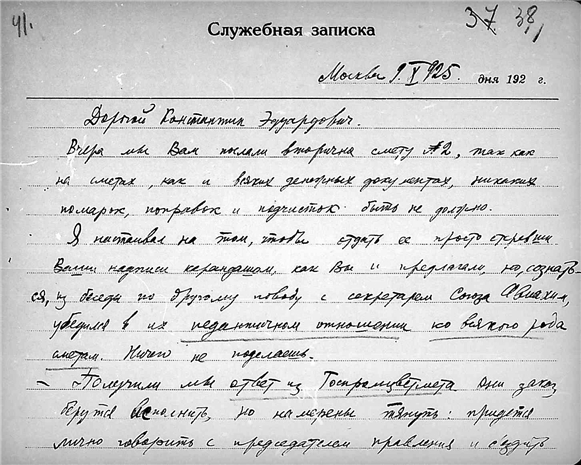 41.
37 38,
Служебная записка
Москва 9.X 1925. дня 192 г.
Дорогой Константин Эдуардович.
Вчера мы Вам послали вторично смету №2, так как
на сметах, как и всяких денежных документах, никаких
помарок, поправок и подчисток быть не должно.
Я настаивал на том, чтобы отдать ее просто стеревши
Ваши надписи карандашом, как Вы и предлагали, но, сознать-
ся, из беседы по другому поводу с секретарем Союза Авиахим,
убедился в их педантичном отношении ко всякого рода
сметам. Ничего не поделаешь.
– Получили мы ответ из Госпромцветмета они заказ
берутся исполнить, но намерены тянуть: придется
лично говорить с председателем правления и ездить